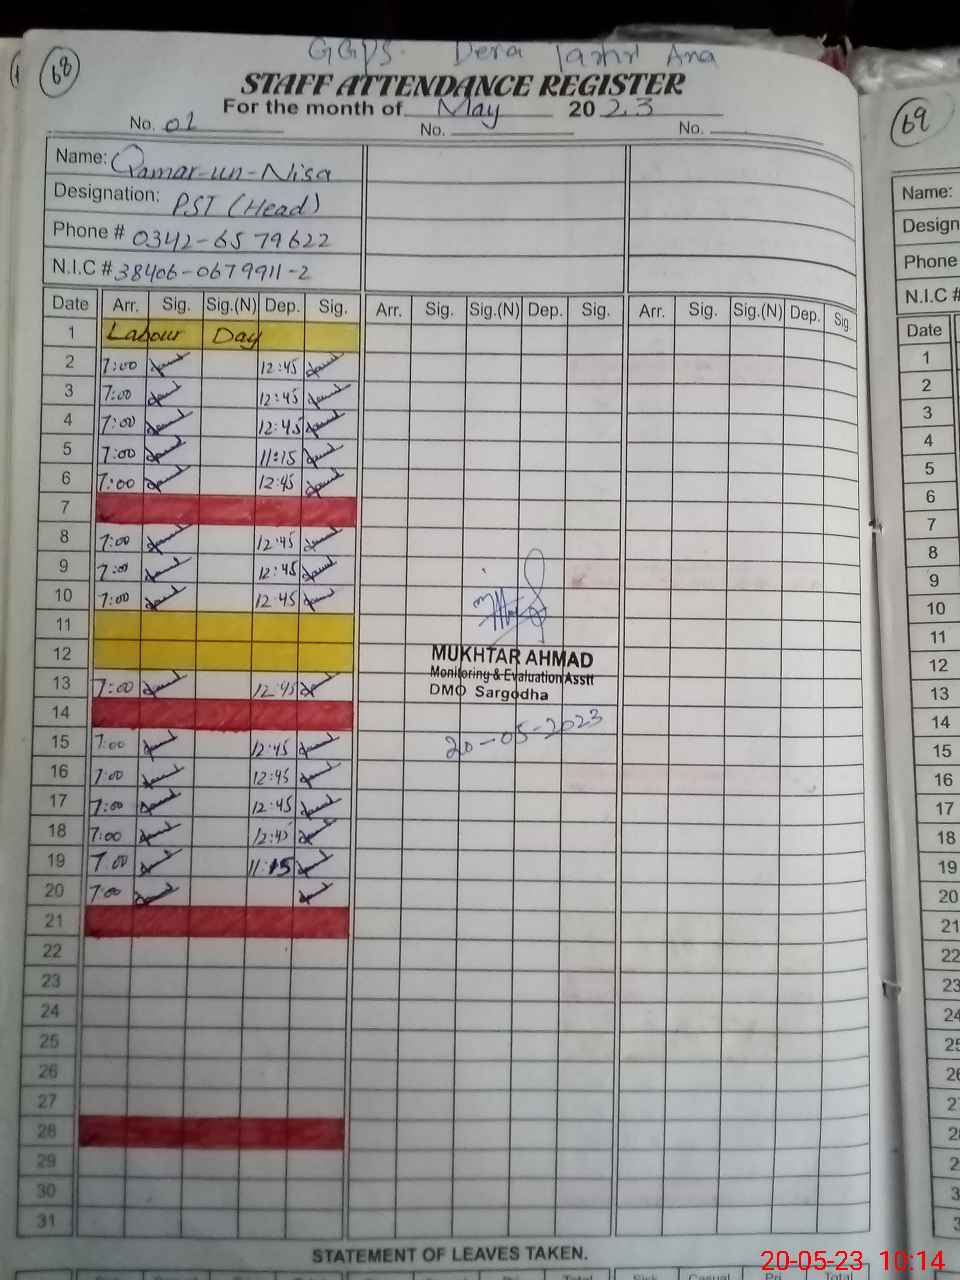 68
GGPS. Dera
STAFF ATTENDANCE REGISTER
For the month of May 2023
No. 01 No. No.
Name: Qamar-un-Nisa
Designation: PST (Head)
Phone # 0342-6579622
N.I.C # 38406-0679911-2
Date Arr. Sig. Sig.(N) Dep. Sig. Arr. Sig. Sig.(N) Dep. Sig. Arr. Sig. Sig.(N) Dep. Sig.
1 Labour Day
2 7:00 12:45
3 7:00 12:45
4 7:00 12:45
5 7:00 11:15
6 7:00 12:45
7
8 7:00 12:45
9 7:00 12:45
10 7:00 12:45
11
12
13 7:00 12:45
14
15 7:00 12:45
16 7:00 12:45
17 7:00 12:45
18 7:00 12:45
19 7:00 11:15
20 7:00
21
22
23
24
25
26
27
28
29
30
31
MUKHTAR AHMAD
Monitoring & Evaluation Asstt
DMO Sargodha
20-05-2023
STATEMENT OF LEAVES TAKEN.
69
Name:
Design
Phone
N.I.C #
Date
1
2
3
4
5
6
7
8
9
10
11
12
13
14
15
16
17
18
19
20
21
22
23
24
25
26
20-05-23 10:14